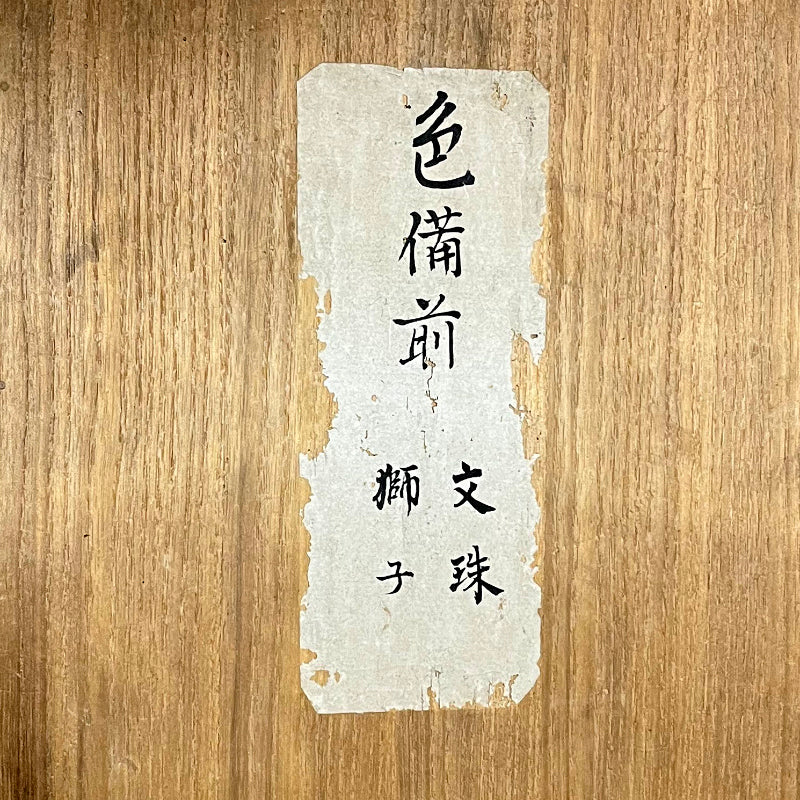 色備前
文珠
獅子